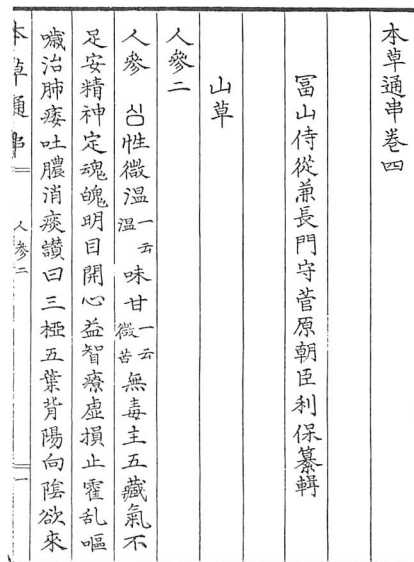 本草通串巻四
冨山侍從兼長門守菅原朝臣利保纂輯
山草
人參二
人參 심性微温一云温味甘一云微苦無毒主五藏氣不
足安精神定魂魄明目開心益智療虛損止霍乱嘔
噦治肺痿吐膿消痰讃曰三椏五葉背陽向陰欲來
本草通串 人參二 一